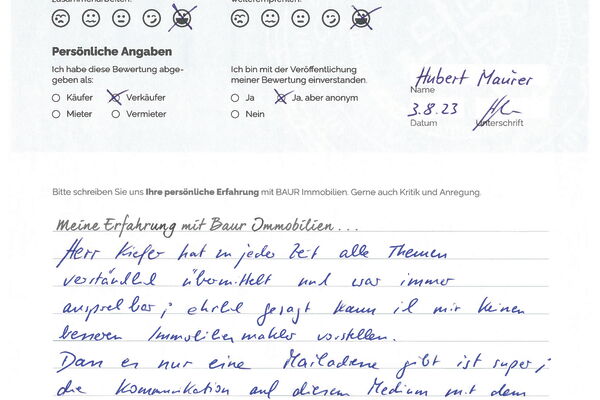 Persönliche Angaben
Ich habe diese Bewertung abge-
geben als:
Käufer Verkäufer
Mieter Vermieter
Ich bin mit der Veröffentlichung
meiner Bewertung einverstanden.
Ja Ja, aber anonym
Nein
Hubert Maurer
Name
3.8.23
Datum Unterschrift
Bitte schreiben Sie uns Ihre persönliche Erfahrung mit BAUR Immobilien. Gerne auch Kritik und Anregung.
Meine Erfahrung mit Baur Immobilien...
Herr Kiefer hat zu jeder Zeit alle Themen
verständlich übermittelt und war immer
ansprechbar; ehrlich gesagt kann ich mir keinen
besseren Immobilienmakler vorstellen.
Dass es nur eine Mailadresse gibt ist super;
die Kommunikation auf diesem Medium mit dem